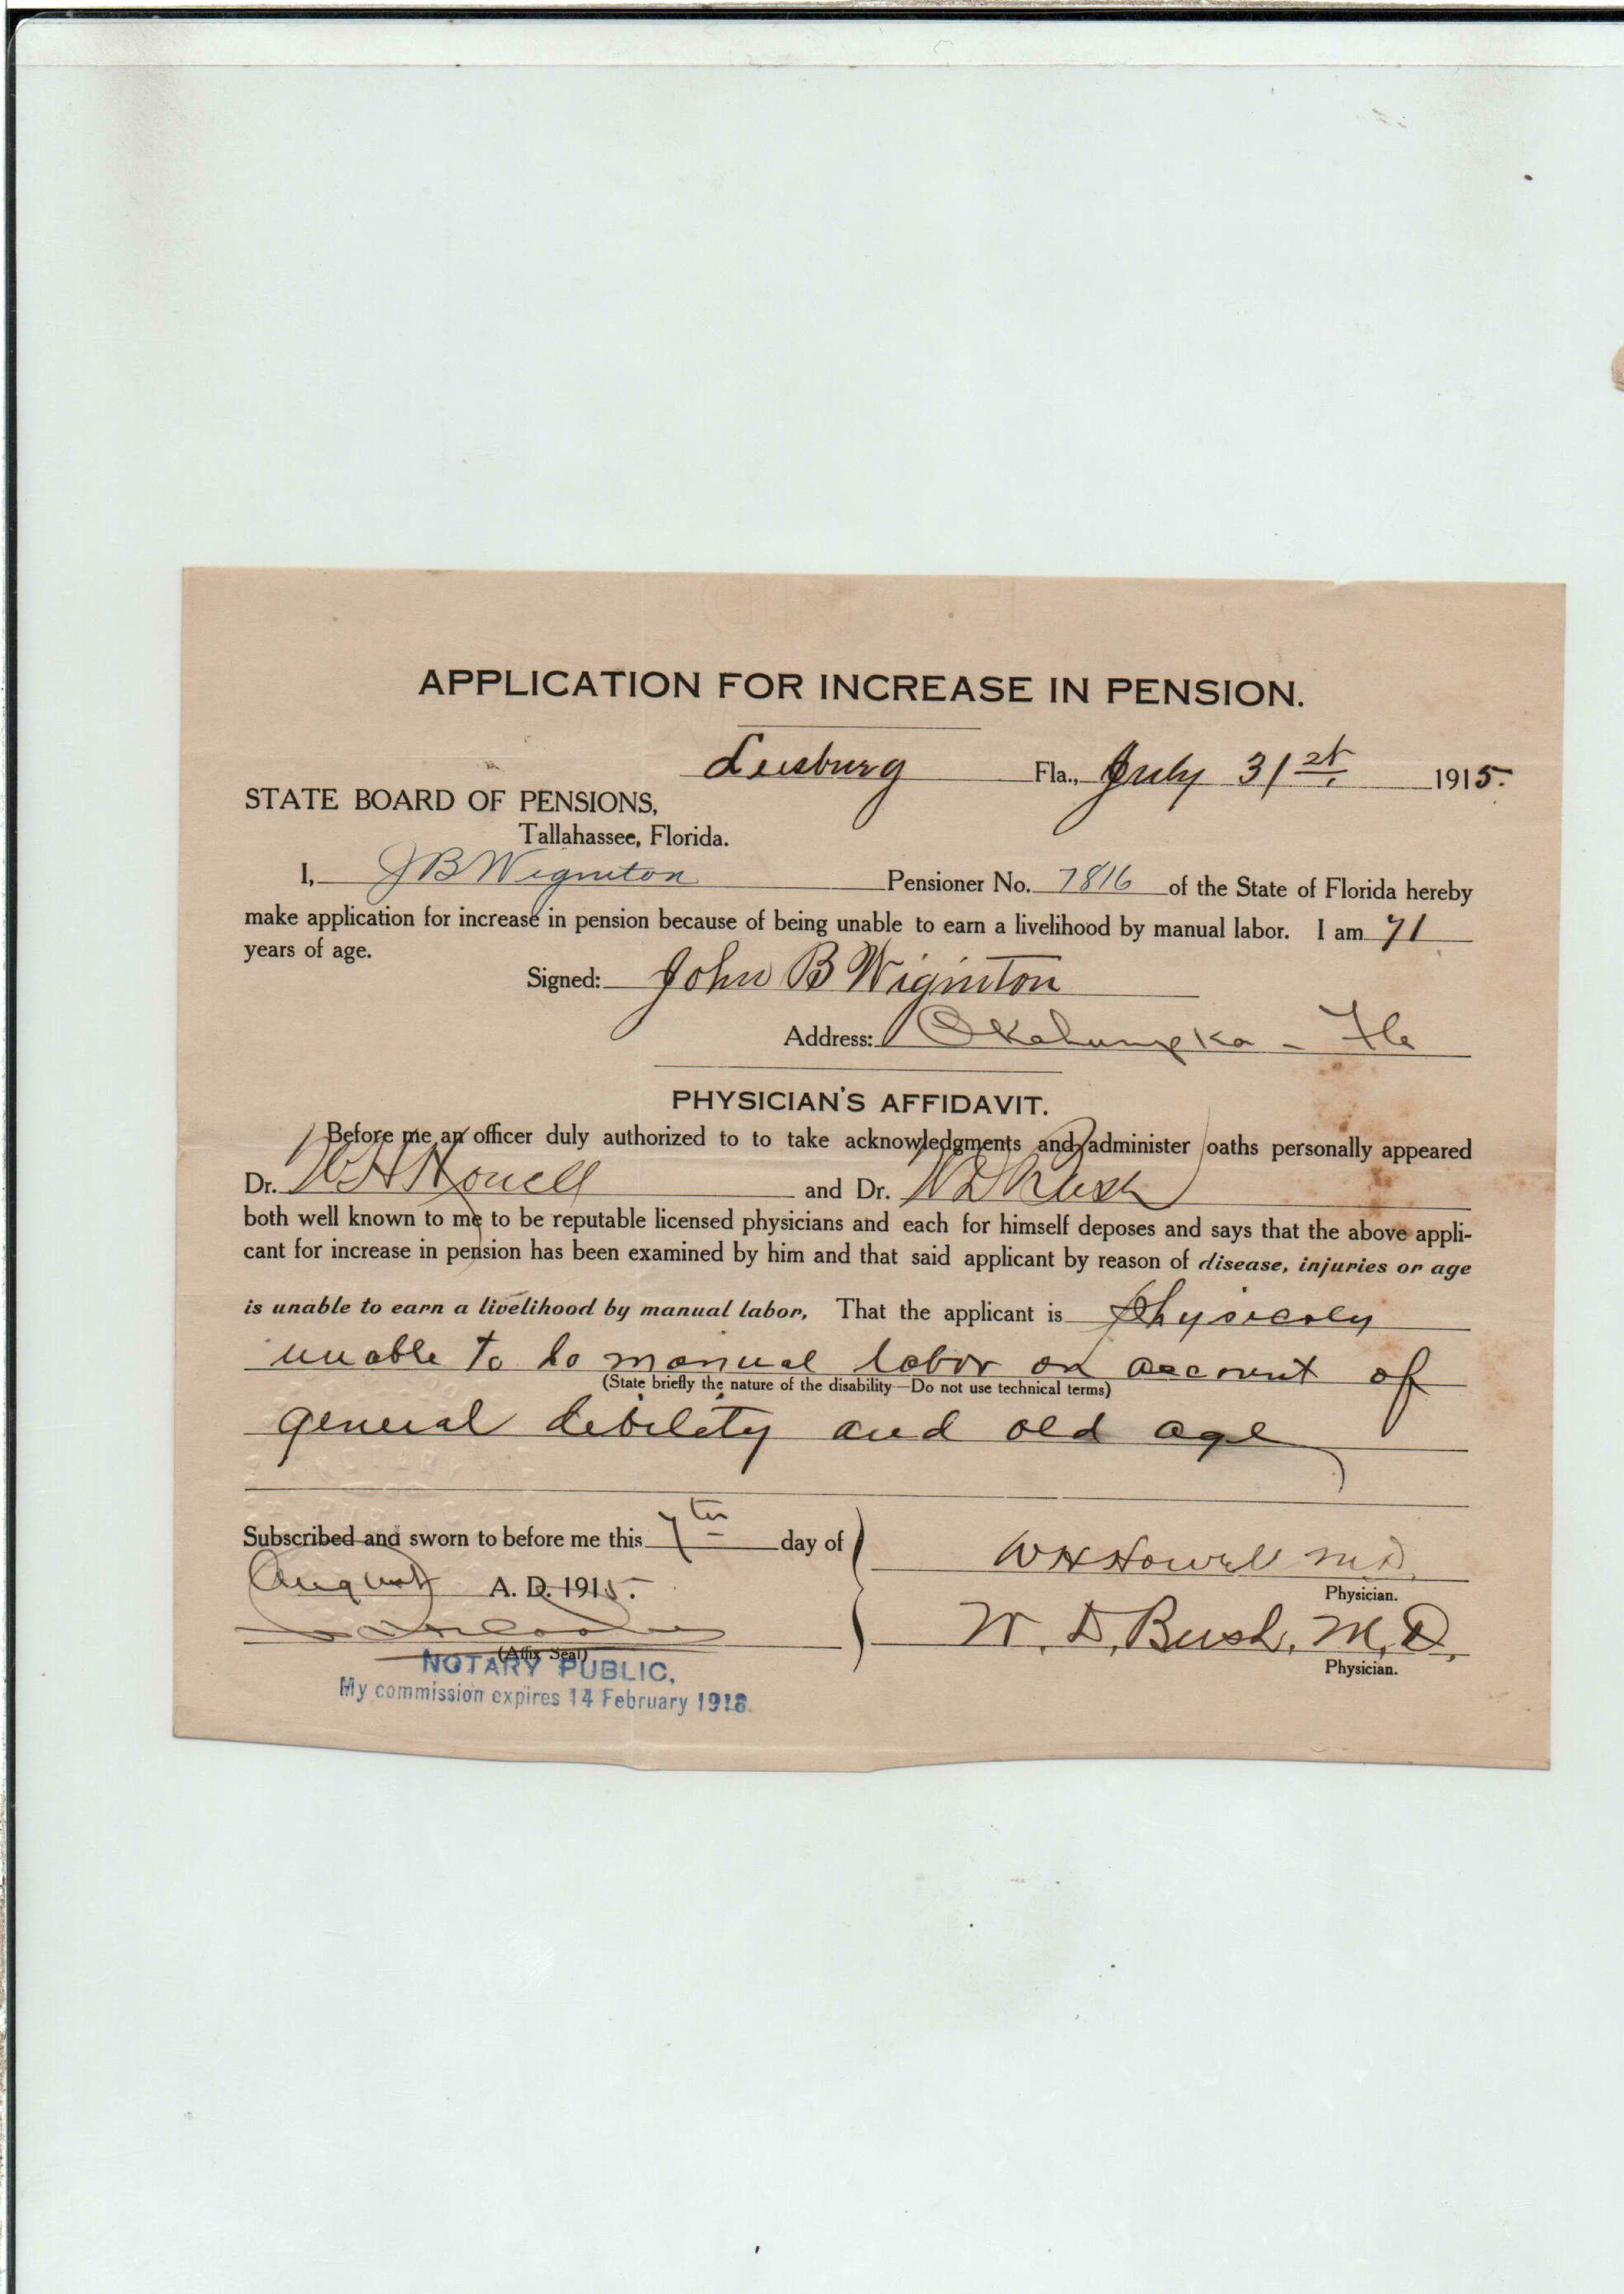 APPLICATION FOR INCREASE IN PENSION.
Leesburg Fla., July 31st. 1915.
STATE BOARD OF PENSIONS,
Tallahassee, Florida.
I, J B Wiginton Pensioner No. 7816 of the State of Florida hereby
make application for increase in pension because of being unable to earn a livelihood by manual labor. I am 71
years of age.
Signed: John B Wiginton
Address: Okahumpka - Fla
PHYSICIAN'S AFFIDAVIT.
Before me an officer duly authorized to to take acknowledgments and administer oaths personally appeared
Dr. W H Howell and Dr. W D Bush
both well known to me to be reputable licensed physicians and each for himself deposes and says that the above appli-
cant for increase in pension has been examined by him and that said applicant by reason of disease, injuries or age
is unable to earn a livelihood by manual labor, That the applicant is physicaly
unable to do manual labor on account of
(State briefly the nature of the disability—Do not use technical terms)
general debility and old age
Subscribed and sworn to before me this 7th day of
August A. D. 1915.
W H Howell M D.
Physician.
W. D. Bush, M. D.
Physician.
(Affix Seal)
NOTARY PUBLIC,
My commission expires 14 February 1918.